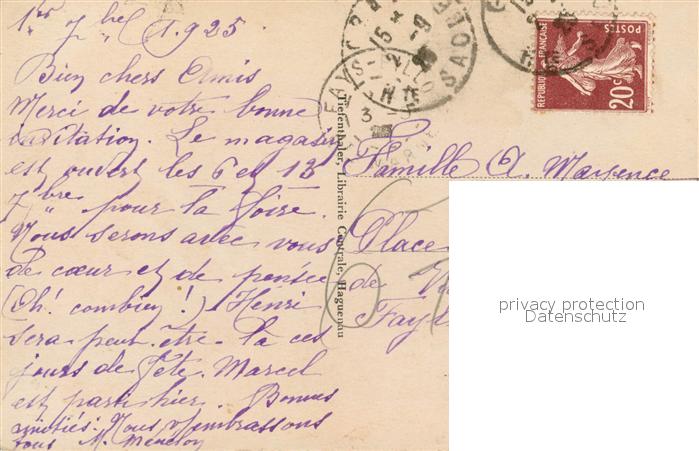 1er 7bre 1925
Bien chers Amis
Merci de votre bonne
invitation. Le magasin
est ouvert les 6 et 13
7bre pour la foire.
Nous serons avec vous
de cœur et de pensée
(Oh! combien!) Henri
sera peut-être là ces
jours de fête. Marcel
est parti hier. Bonnes
amitiés. Nous vs embrassons
tous M.
Tiefenthaler, Librairie Centrale, Haguenau
REPUBLIQUE FRANÇAISE
POSTES
20c
Famille A. Mayence
Place
de
Fayl
privacy protection
Datenschutz